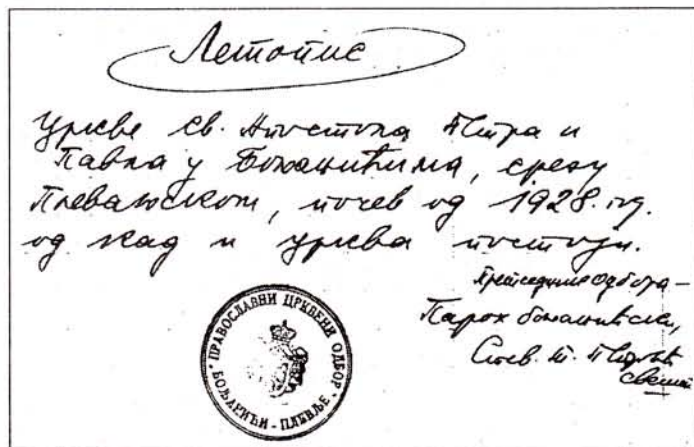 Летопис
Цркве св. Апостола Петра и
Павла у Бољанићима, срезу
Плеваљском, почев од 1928. год.
од кад и црква постоји.
Претседник одбора –
Парох бољанићски,
Стев. Т.
свешт.
ПРАВОСЛАВНИ ЦРКВЕНИ ОДБОР
БОЉАНИЋИ - ПЛЕВЉЕ